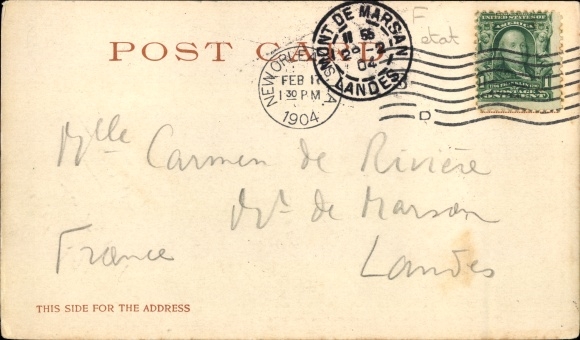 POST CARD
F
etat
UNITED STATES OF AMERICA
NEW ORLEANS LA
FEB 17
1 30 PM
1904
MONT DE MARSAN
LANDES
04
D
Mlle Carmen de Rivière
Mt de Marsan
France Landes
THIS SIDE FOR THE ADDRESS